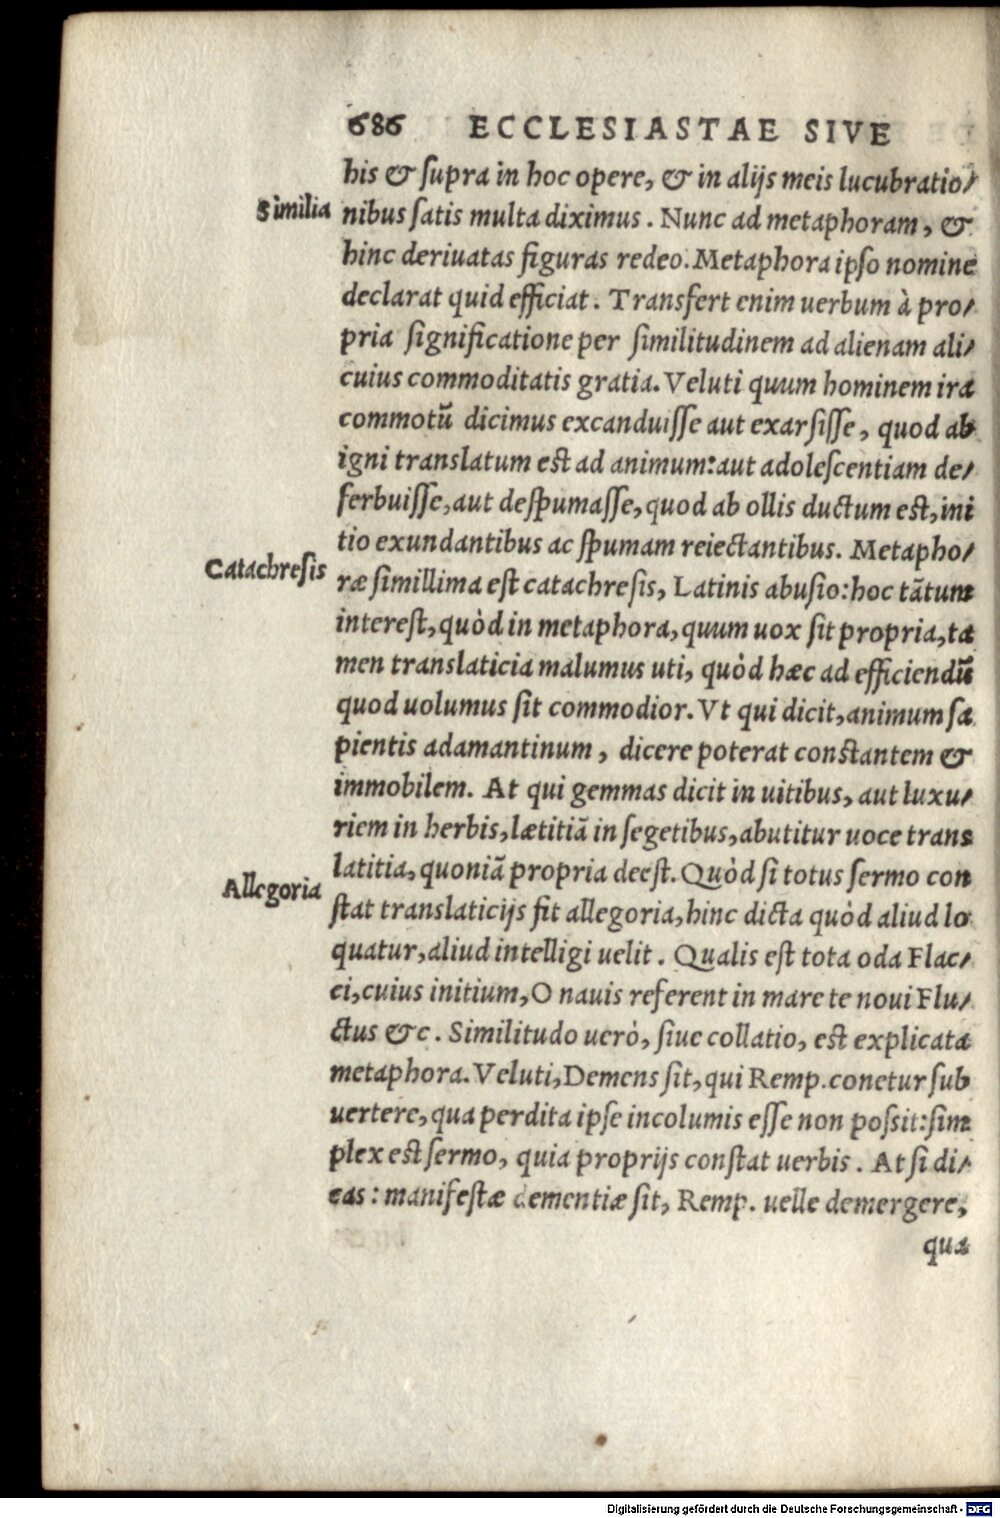 686 ECCLESIASTAE SIVE
his & ſupra in hoc opere, & in alijs meis lucubratio/
Similia
nibus ſatis multa diximus. Nunc ad metaphoram, &
hinc deriuatas figuras redeo. Metaphora ipſo nomine
declarat quid efficiat. Transfert enim uerbum à pro/
pria ſignificatione per ſimilitudinem ad alienam ali/
cuius commoditatis gratia. Veluti quum hominem ira
commotū dicimus excanduiſſe aut exarſiſſe, quod ab
igni translatum eſt ad animum: aut adoleſcentiam de/
ferbuiſſe, aut deſpumaſſe, quod ab ollis ductum eſt, ini
tio exundantibus ac ſpumam reiectantibus. Metapho/
Catachreſis
ræ ſimillima eſt catachreſis, Latinis abuſio: hoc tātum
intereſt, quòd in metaphora, quum uox ſit propria, ta
men translaticia malumus uti, quòd hæc ad efficiendū
quod uolumus ſit commodior. Vt qui dicit, animum ſa
pientis adamantinum, dicere poterat conſtantem &
immobilem. At qui gemmas dicit in uitibus, aut luxu/
riem in herbis, lætitiā in ſegetibus, abutitur uoce trans
latitia, quoniā propria deeſt. Quòd ſi totus ſermo con
Allegoria
ſtat translaticijs fit allegoria, hinc dicta quòd aliud lo
quatur, aliud intelligi uelit. Qualis eſt tota oda Flac/
ci, cuius initium, O nauis referent in mare te noui Flu/
ctus &c. Similitudo uerò, ſiue collatio, eſt explicata
metaphora. Veluti, Demens ſit, qui Remp. conetur ſub
uertere, qua perdita ipſe incolumis eſſe non poſsit: ſim
plex eſt ſermo, quia proprijs conſtat uerbis. At ſi di/
cas: manifeſtæ dementiæ ſit, Remp. uelle demergere,
qua
Digitalisierung gefördert durch die Deutsche Forschungsgemeinschaft - DFG